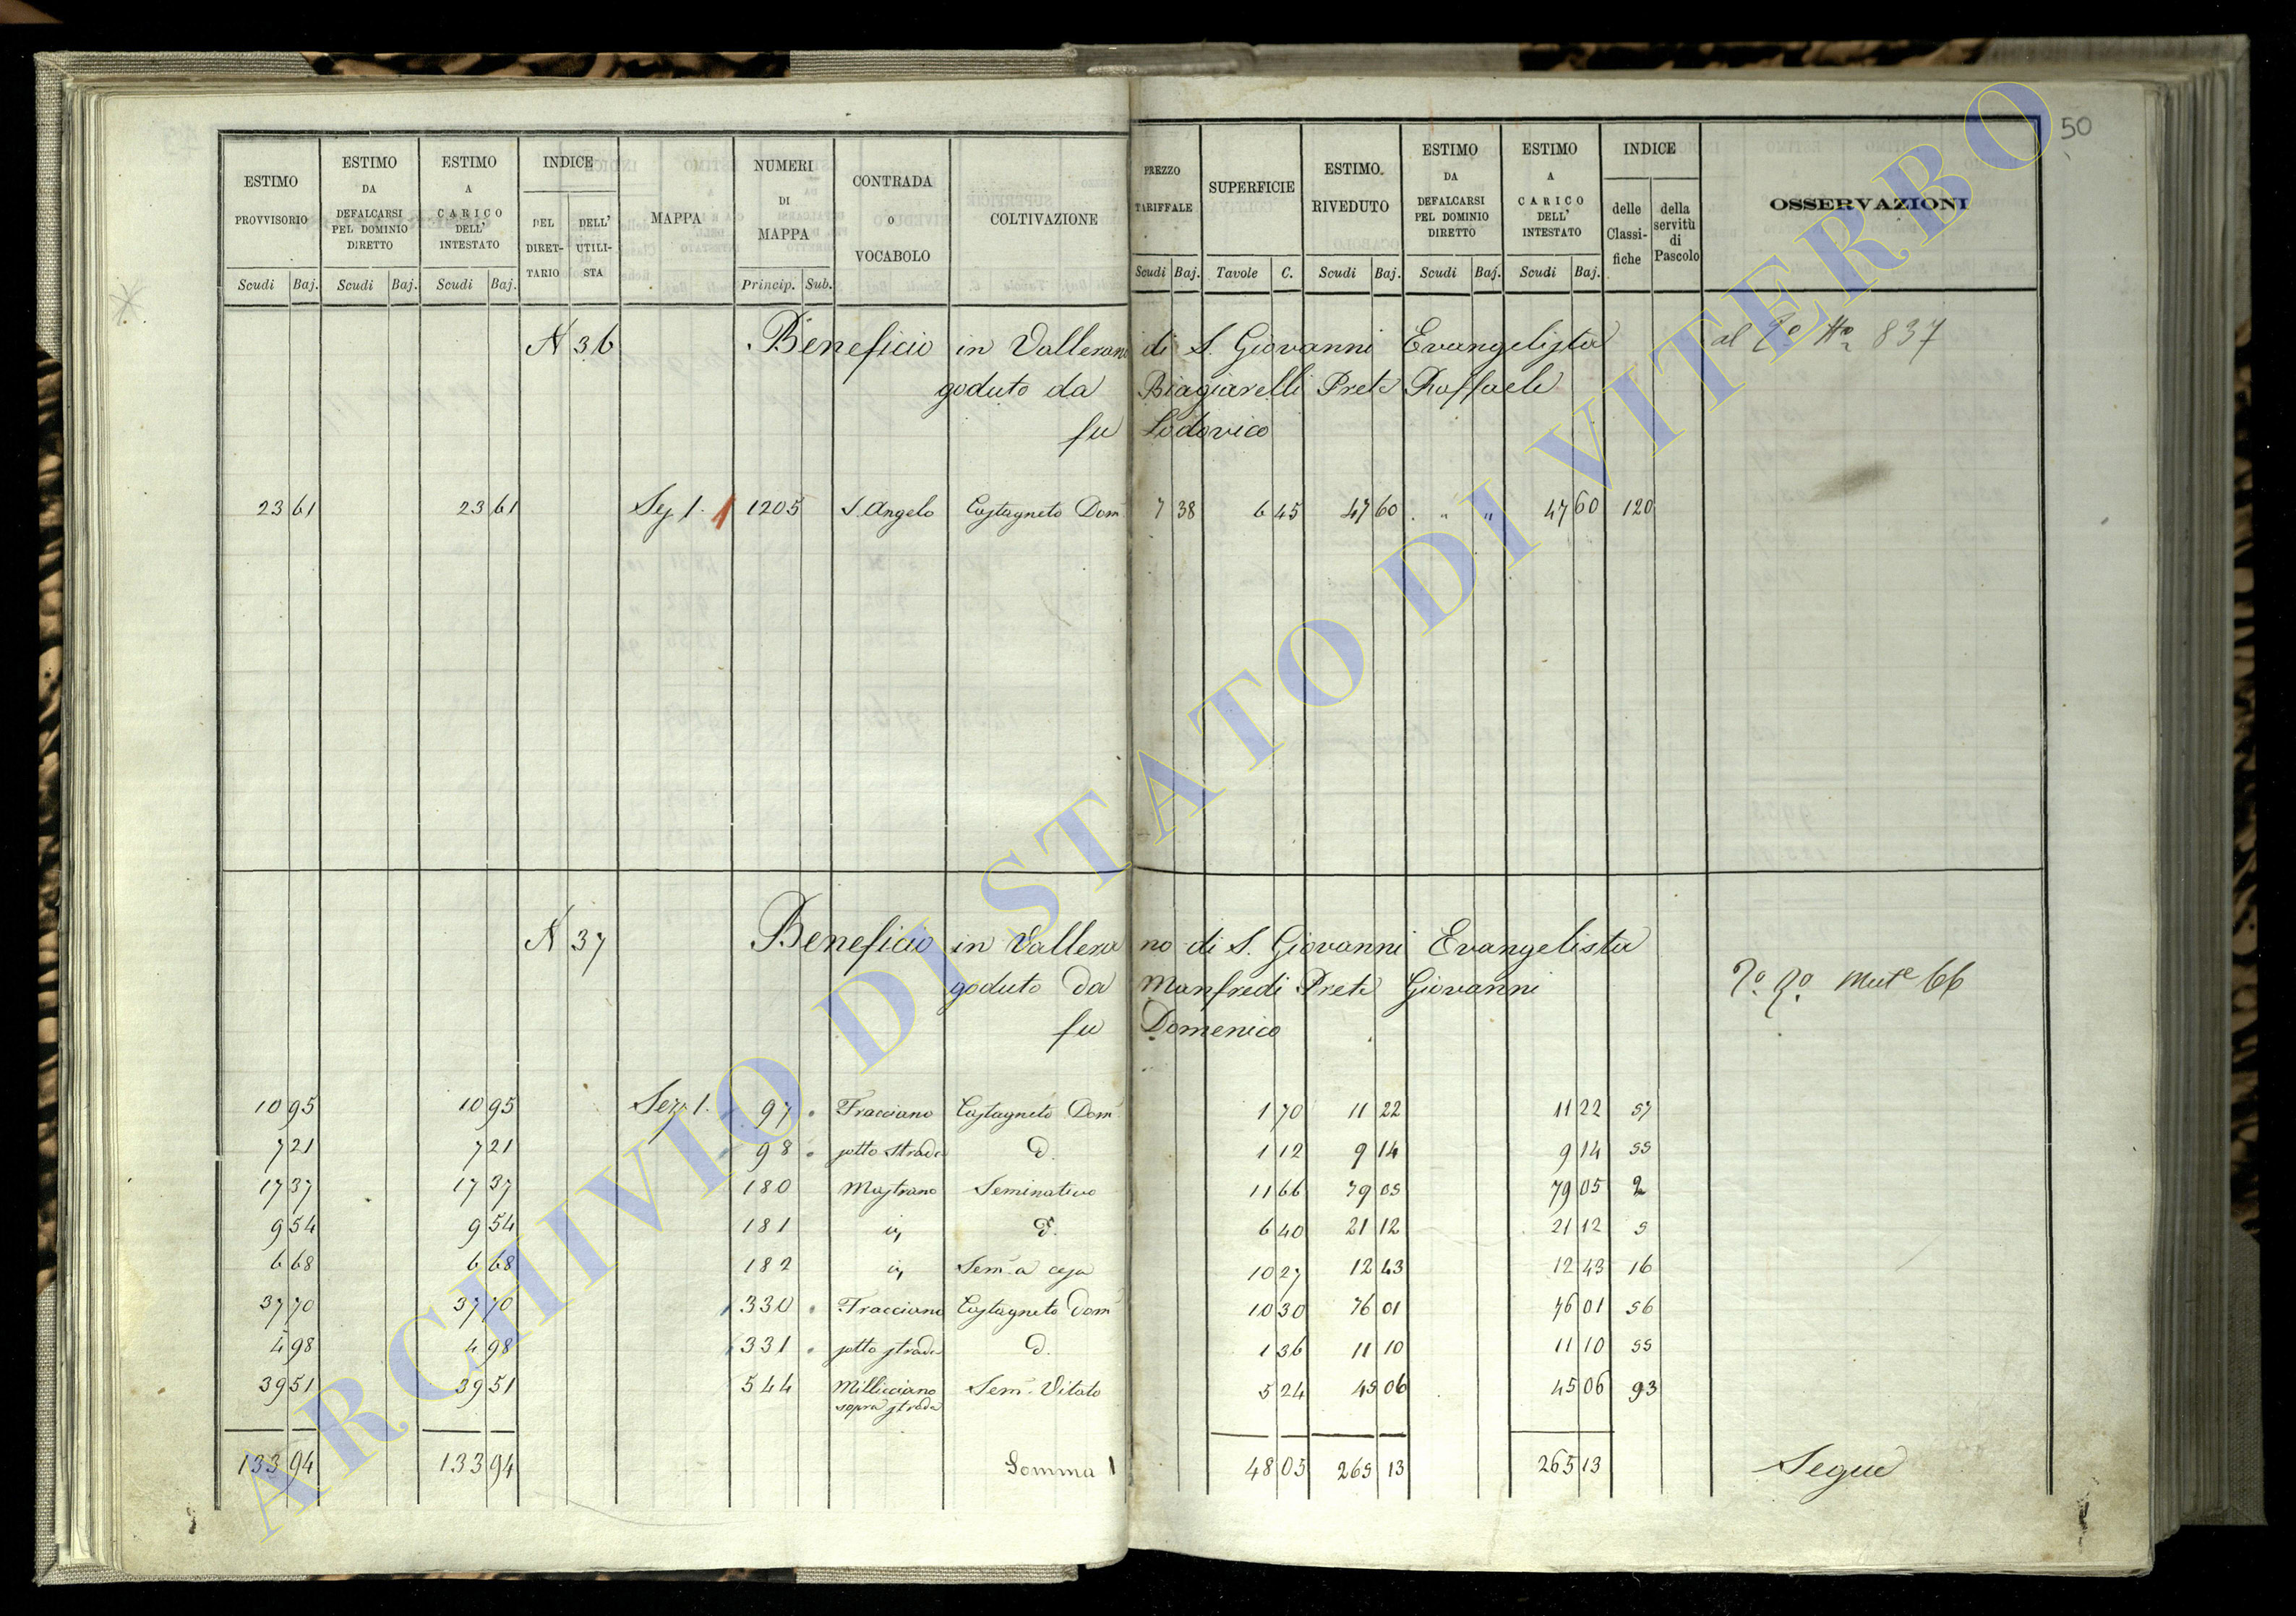 50
ESTIMO PROVVISORIO | ESTIMO DA DEFALCARSI PEL DOMINIO DIRETTO | ESTIMO A CARICO DELL' INTESTATO | INDICE | MAPPA | NUMERI DI MAPPA | CONTRADA o VOCABOLO | COLTIVAZIONE | PREZZO TARIFFALE | SUPERFICIE | ESTIMO RIVEDUTO | ESTIMO DA DEFALCARSI PEL DOMINIO DIRETTO | ESTIMO A CARICO DELL' INTESTATO | INDICE | OSSERVAZIONI
DEL DIRETTARIO | DELL' UTILISTA | delle Classifiche | della servitù di Pascolo
Scudi | Baj. | Scudi | Baj. | Scudi | Baj. | Princip. | Sub. | Scudi | Baj. | Tavole | C. | Scudi | Baj. | Scudi | Baj. | Scudi | Baj.
N 36 Beneficio in Vallerano di S. Giovanni Evangelista al 2º Nº 837
goduto da Biagiarelli Prete Raffaele
fu Lodovico
23 61 | 23 61 | Sez 1. 1 | 1205 | S. Angelo | Castagneto Dom | 7 38 | 6 45 | 47 60 | " " | 47 60 | 120
N 37 Beneficio in Vallerano di S. Giovanni Evangelista
goduto da Manfredi Prete Giovanni
fu Domenico
10 95 | 10 95 | Sez. 1. | 97 | Fracciano | Castagneto Dom | 1 70 | 11 22 | 11 22 | 57
7 21 | 7 21 | 98 | sotto strada | d. | 1 12 | 9 14 | 9 14 | 55
17 37 | 17 37 | 180 | Mastrano | Seminativo | 11 66 | 79 05 | 79 05 | 2
9 54 | 9 54 | 181 | d. | 6 40 | 21 12 | 21 12 | 5
6 68 | 6 68 | 182 | 10 27 | 12 43 | 12 43 | 16
37 70 | 37 70 | 330 | Fracciano | Castagneto Dom | 10 30 | 76 01 | 76 01 | 56
4 98 | 4 98 | 331 | sotto strada | d. | 1 36 | 11 10 | 11 10 | 55
39 51 | 39 51 | 544 | Millicciano sopra strada | Sem. Vitato | 5 24 | 45 06 | 45 06 | 93
133 94 | 133 94 | Somma | 48 05 | 265 13 | 265 13 | Segue
ARCHIVIO DI STATO DI VITERBO